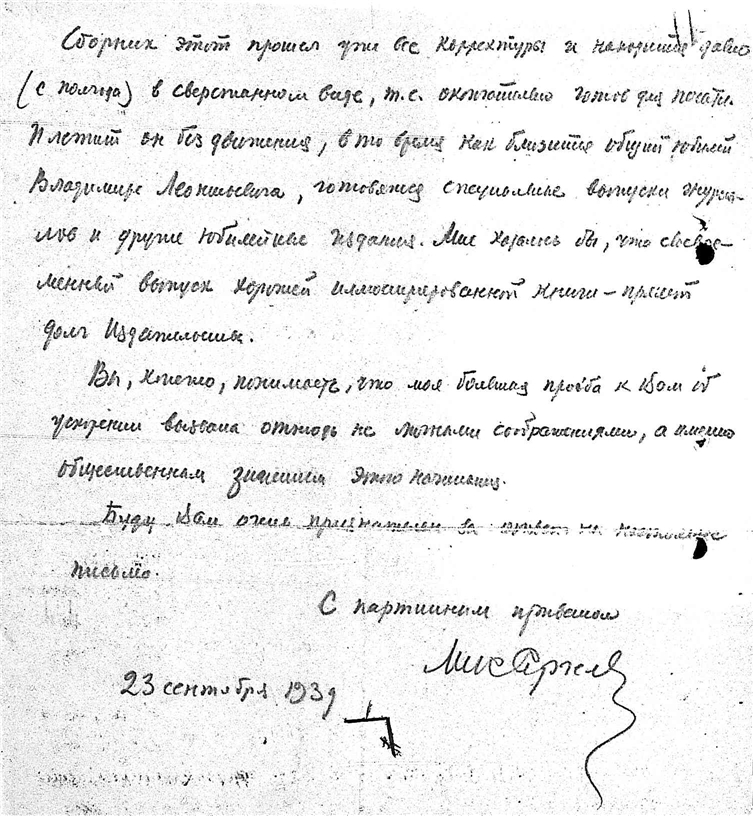 Сборник этот прошел уже все корректуры и находится давно
(с полгода) в сверстанном виде, т.е. окончательно готов для печати.
И лежит он без движения, в то время как близится общий юбилей
Владимира Леонтьевича, готовятся специальные выпуски журна-
лов и другие юбилейные издания. Мне казалось бы, что своевре-
менный выпуск хорошей иллюстрированной книги – прямой
долг Издательства.
Вы, конечно, понимаете, что моя большая просьба к Вам об
ускорении вызвана отнюдь не личными соображениями, а именно
общественным значением этого начинания.
Буду Вам очень признателен за ответ на настоящее
письмо.
С партийным приветом
23 сентября 1939